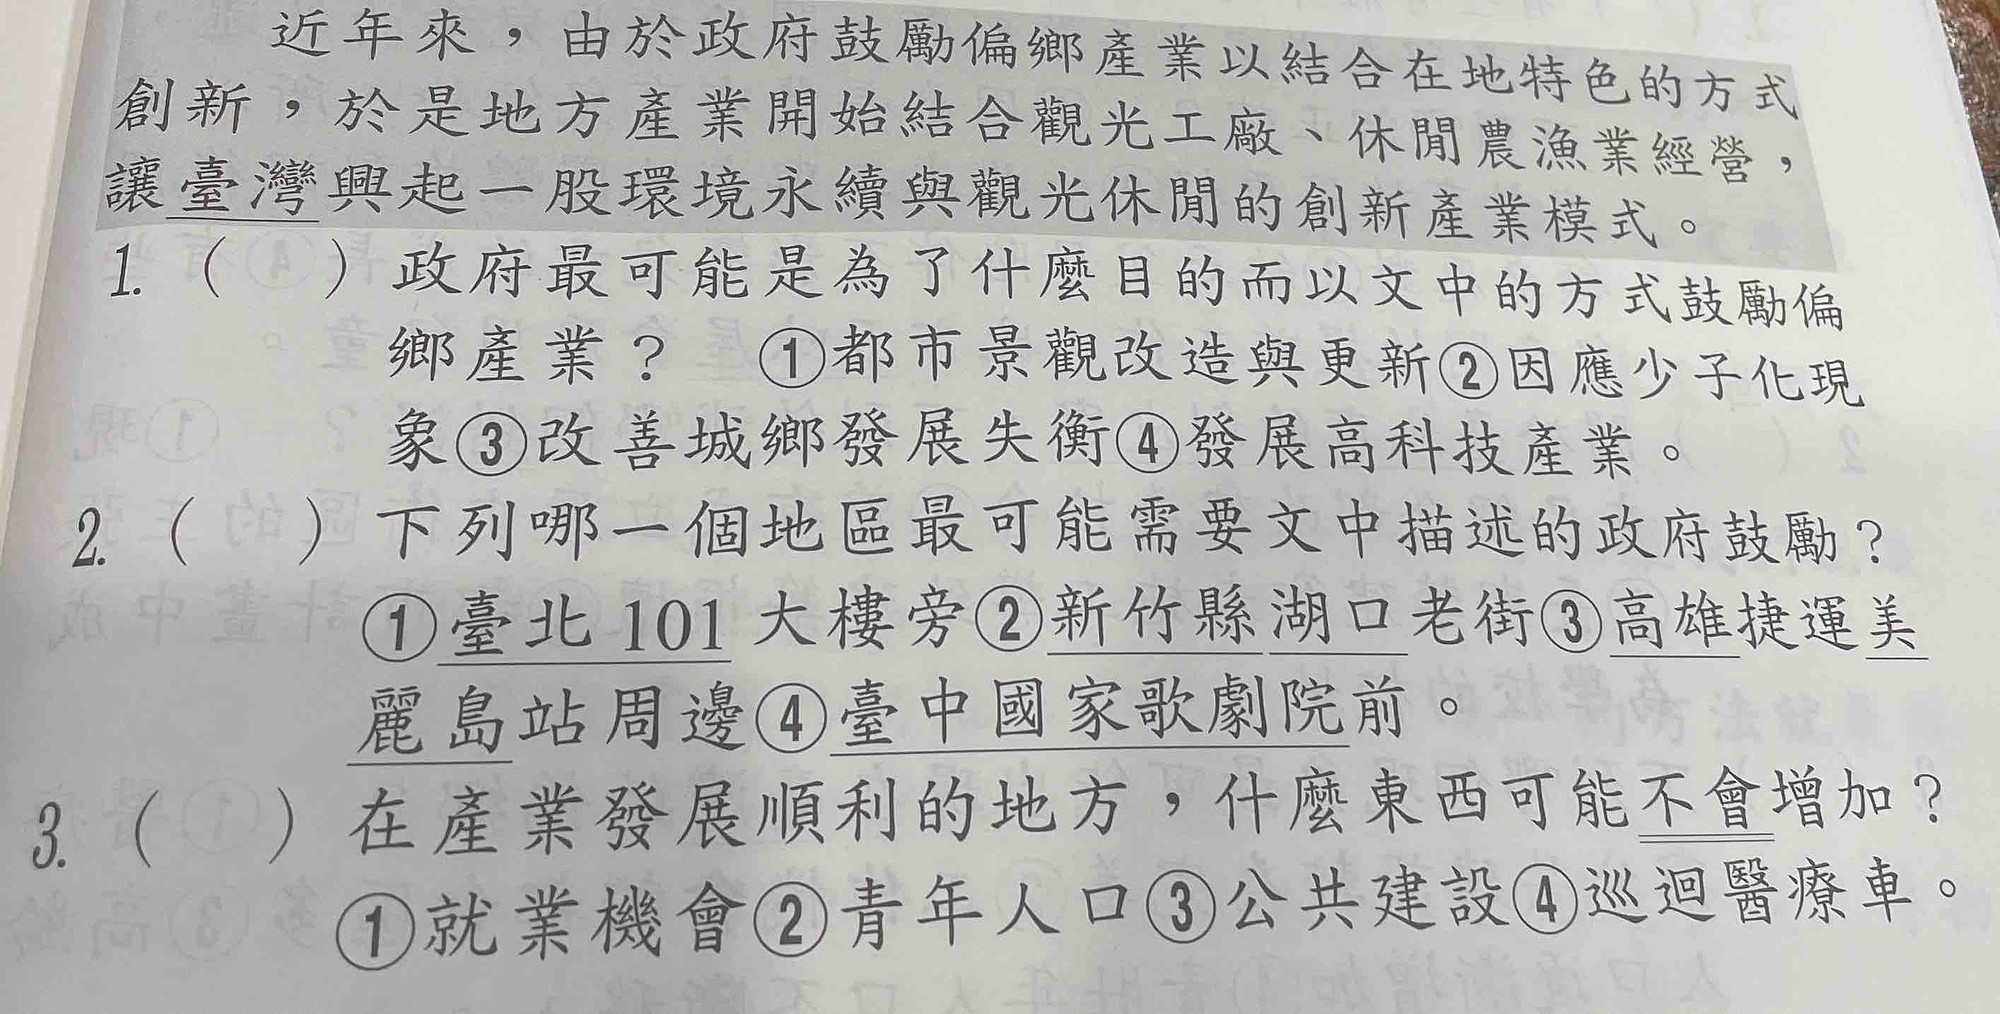 近年來，由於政府鼓勵偏鄉產業以結合在地特色的方式
創新，於是地方產業開始結合觀光工廠、休閒農漁業經營，
讓臺灣興起一股環境永續與觀光休閒的創新產業模式。
1. （ ）政府最可能是為了什麼目的而以文中的方式鼓勵偏
鄉產業？ ①都市景觀改造與更新②因應少子化現
象③改善城鄉發展失衡④發展高科技產業。
2. （ ）下列哪一個地區最可能需要文中描述的政府鼓勵？
①臺北101大樓旁②新竹縣湖口老街③高雄捷運美
麗島站周邊④臺中國家歌劇院前。
3. （ ）在產業發展順利的地方，什麼東西可能不會增加？
①就業機會②青年人口③公共建設④巡迴醫療車。